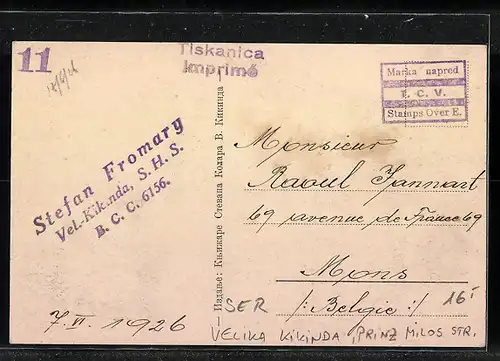 11
Tiskanica
Imprimé
Marka napred
T. C. V.
Stamps Over E.
Stefan Fromary
Vel.-Kikinda, S. H. S.
B. C. C. 6156.
Издање: Књижаре Стевана Колара В. Кикинда
Monsieur
Raoul Jannart
69 avenue de France 69
Mons
/: Belgie :/
7. VI. 1926
SER
16
VELIKA KIKINDA, PRINZ MILOS STR.